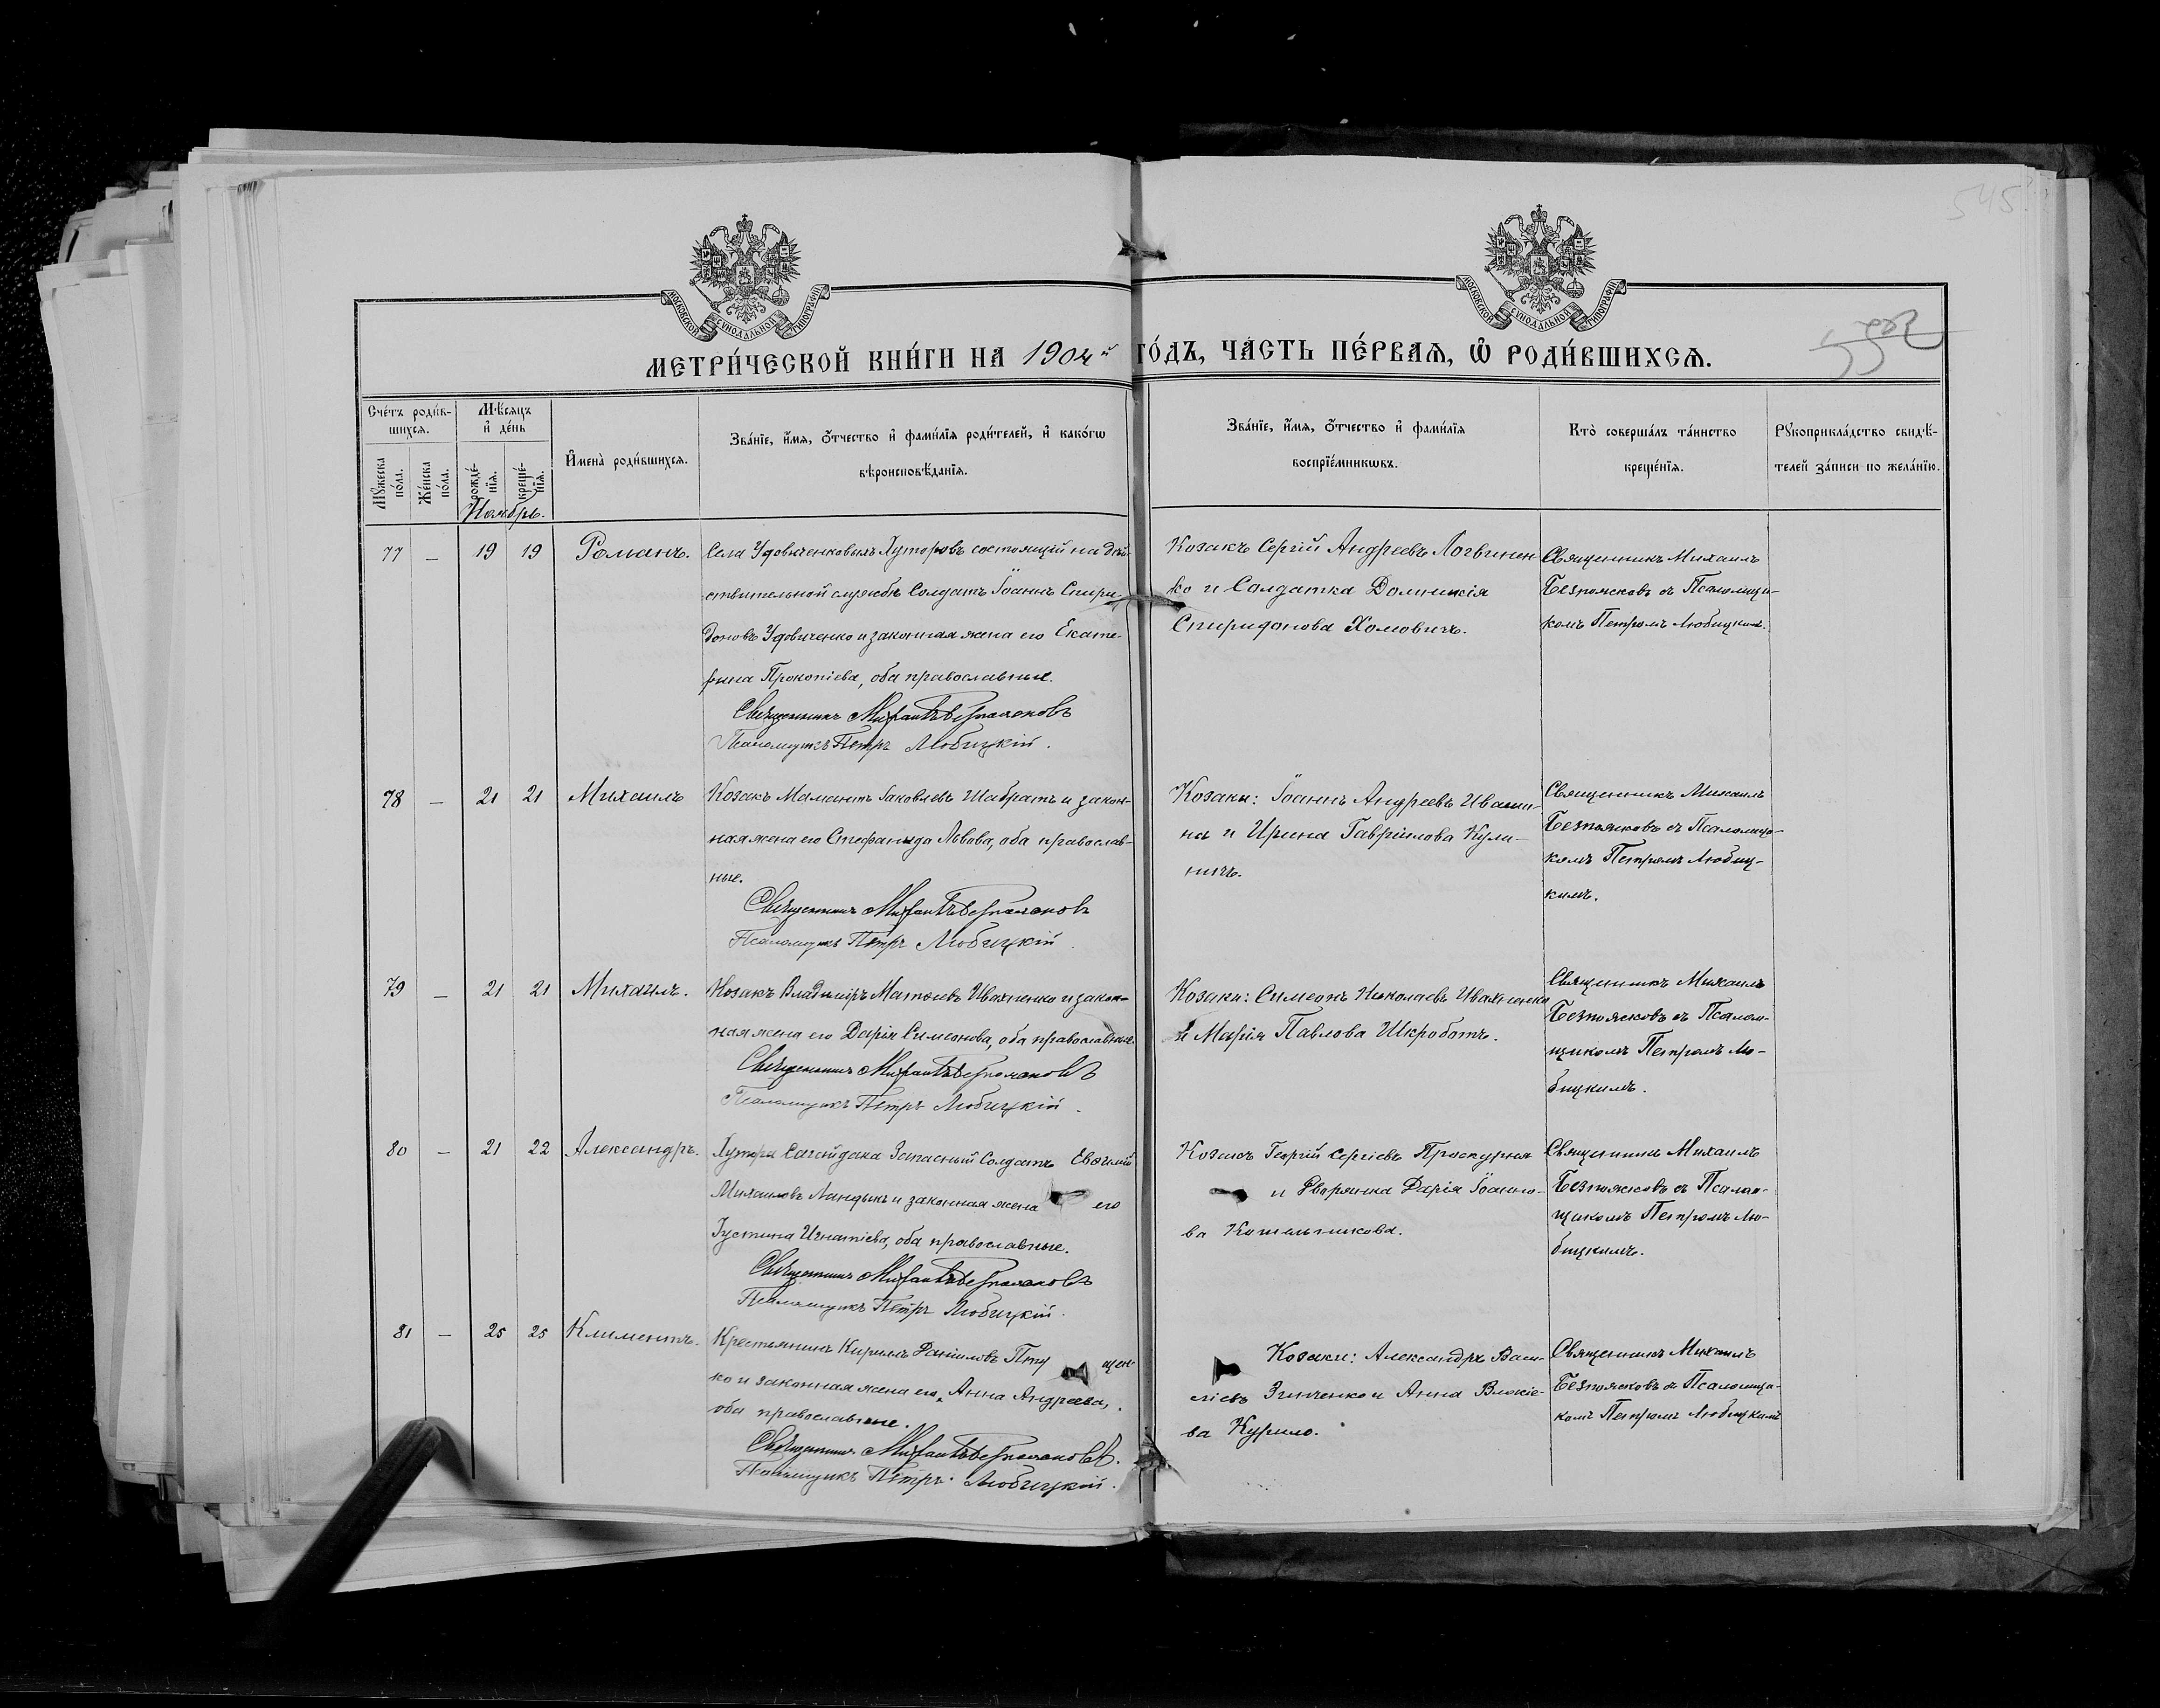 545
МОСКОВСКОЙ СѴНОДАЛЬНОЙ ТИПОГРАФІИ
МОСКОВСКОЙ СѴНОДАЛЬНОЙ ТИПОГРАФІИ
МЕТРИ́ЧЕСКОЙ КНИ́ГИ НА 1904й ГО́ДЪ, ЧА́СТЬ ПЕ́РВАѦ, Ѡ҆ РОДИ́ВШИХСѦ.
Сче́тъ роди́в-
шихсѧ.
Мꙋ́жеска по́ла.
Же́нска по́ла.
Мѣ́сѧцъ
и҆ де́нь
рожде́-
нїѧ.
креще́-
нїѧ.
И҆мена̀ роди́вшихсѧ.
Зва́нїе, и҆́мѧ, ѻ҆́тчество и҆ фами́лїѧ роди́телей, и҆ како́гѡ
вѣроисповѣ́данїѧ.
Зва́нїе, и҆́мѧ, ѻ҆́тчество и҆ фами́лїѧ
воспрїе́мникѡвъ.
Кто̀ соверша́лъ та́инство
креще́нїѧ.
Рꙋкоприкла́дство свидѣ́-
телей за́писи по жела́нїю.
Ноябрь.
77 — 19 19 Романъ.
Села Удовиченковыхъ Хуторовъ состоящій на дѣй-
ствительной службѣ Солдатъ Іоаннъ Спири-
доновъ Удовиченко и законная жена его Екате-
рина Прокопіева, оба православные.
Священникъ Михаилъ Безпоясковъ
Псаломщикъ Петръ Любицкій.
Козакъ Сергій Андреевъ Логвинен
ко и Солдатка Домникія
Спиридонова Хомовичъ.
Священникъ Михаилъ
Безпоясковъ съ Псаломщи-
комъ Петромъ Любицкимъ.
78 — 21 21 Михаилъ
Козакъ Мамантъ Іаковлевъ Шабратъ и закон-
ная жена его Стефанида Львова, оба православ-
ные.
Священникъ Михаилъ Безпоясковъ
Псаломщикъ Петръ Любицкій.
Козаки: Іоаннъ Андреевъ Иваши-
на и Ирина Гавріилова Кули-
ничъ.
Священникъ Михаилъ
Безпоясковъ съ Псаломщи-
комъ Петромъ Любиц-
кимъ.
79 — 21 21 Михаилъ.
Козакъ Владиміръ Матѳіевъ Ивахненко и закон-
ная жена его Дарія Симеонова, оба православные.
Священникъ Михаилъ Безпоясковъ
Псаломщикъ Петръ Любицкій.
Козаки: Симеонъ Николаевъ Ивахненко
и Марія Павлова Шкроботъ.
Священникъ Михаилъ
Безпоясковъ съ Псалом-
щикомъ Петромъ Лю-
бицкимъ.
80 — 21 22 Александръ.
Хутора Сагайдака Запасный Солдатъ Евѳимій
Михаиловъ Ландыкъ и законная жена его
Іустина Игнатіева, оба православные.
Священникъ Михаилъ Безпоясковъ
Псаломщикъ Петръ Любицкій.
Козакъ Георгій Сергіевъ Проскурня
и Дворянка Дарія Іоанно-
ва Котельникова.
Священникъ Михаилъ
Безпоясковъ съ Псалом-
щикомъ Петромъ Лю-
бицкимъ.
81 — 25 25 Климентъ.
Крестьянинъ Кирилъ Даніиловъ Пту щен-
ко и законная жена его Анна Андреева,
оба православные.
Священникъ Михаилъ Безпоясковъ.
Псаломщикъ Петръ Любицкій.
Козаки: Александръ Васи-
ліевъ Зинченко и Анна Власіе-
ва Курило.
Священникъ Михаилъ
Безпоясковъ съ Псаломщи-
комъ Петромъ Любицкимъ